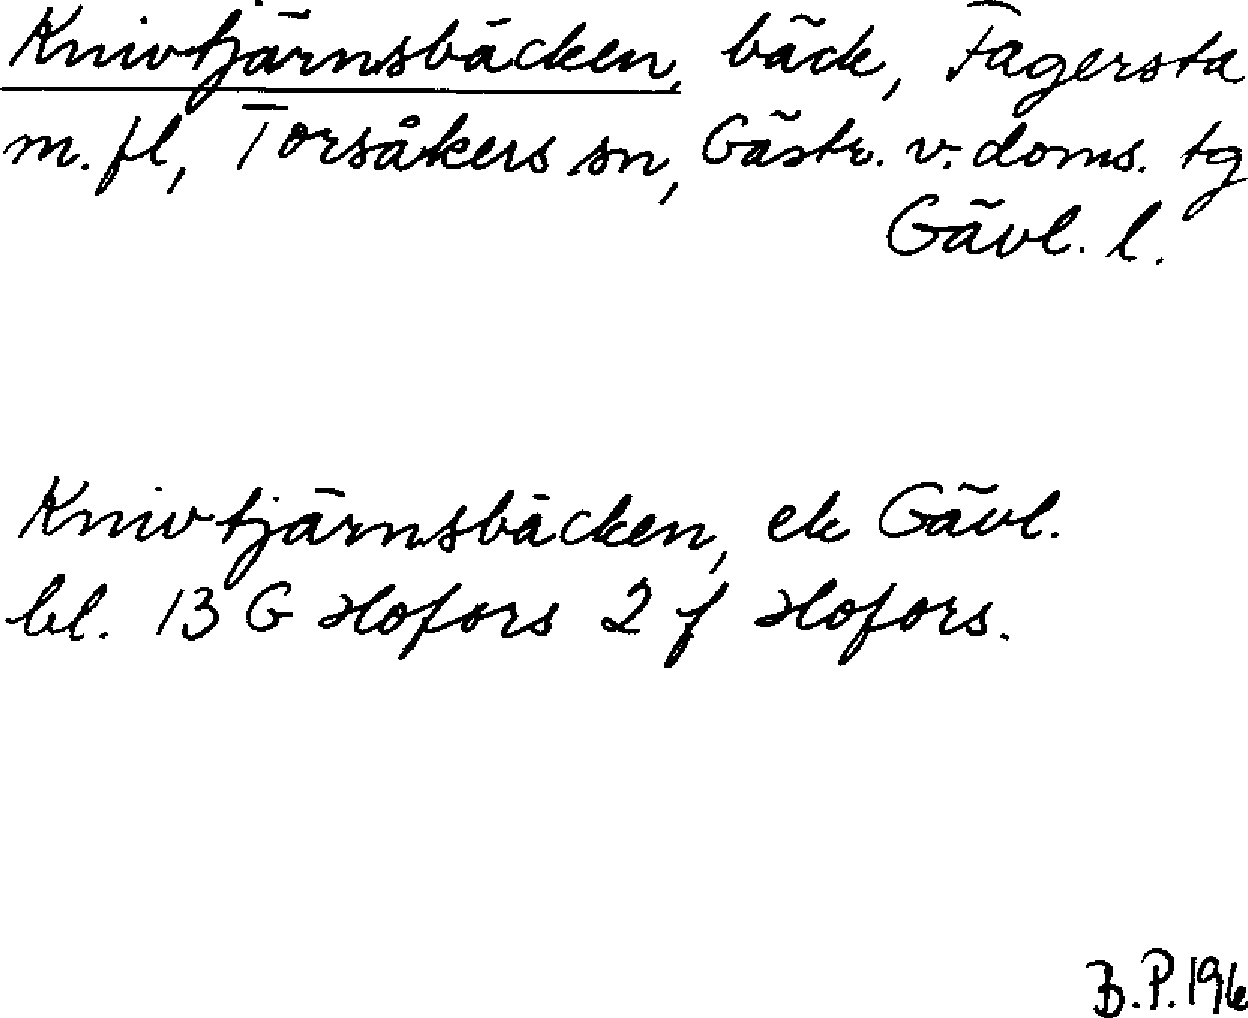 Knivtjärnsbäcken, bäck, Fagersta
m. fl, Torsåkers sn, Gästr. v. doms. tg
Gävl. l.
Knivtjärnsbäcken, ek Gävl.
bl. 13 G Hofors 2 f Hofors.
B.P. 196